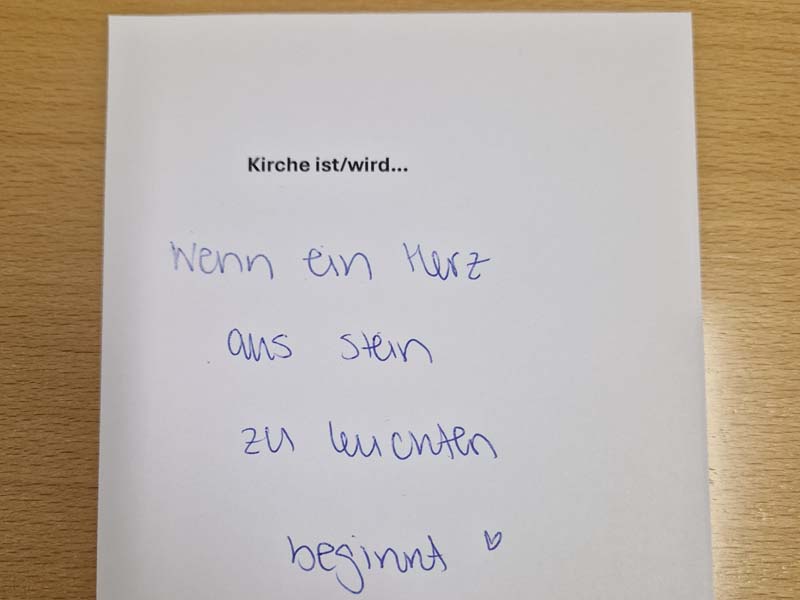 Kirche ist/wird...
Wenn ein Herz
aus stein
zu leuchten
beginnt ♡